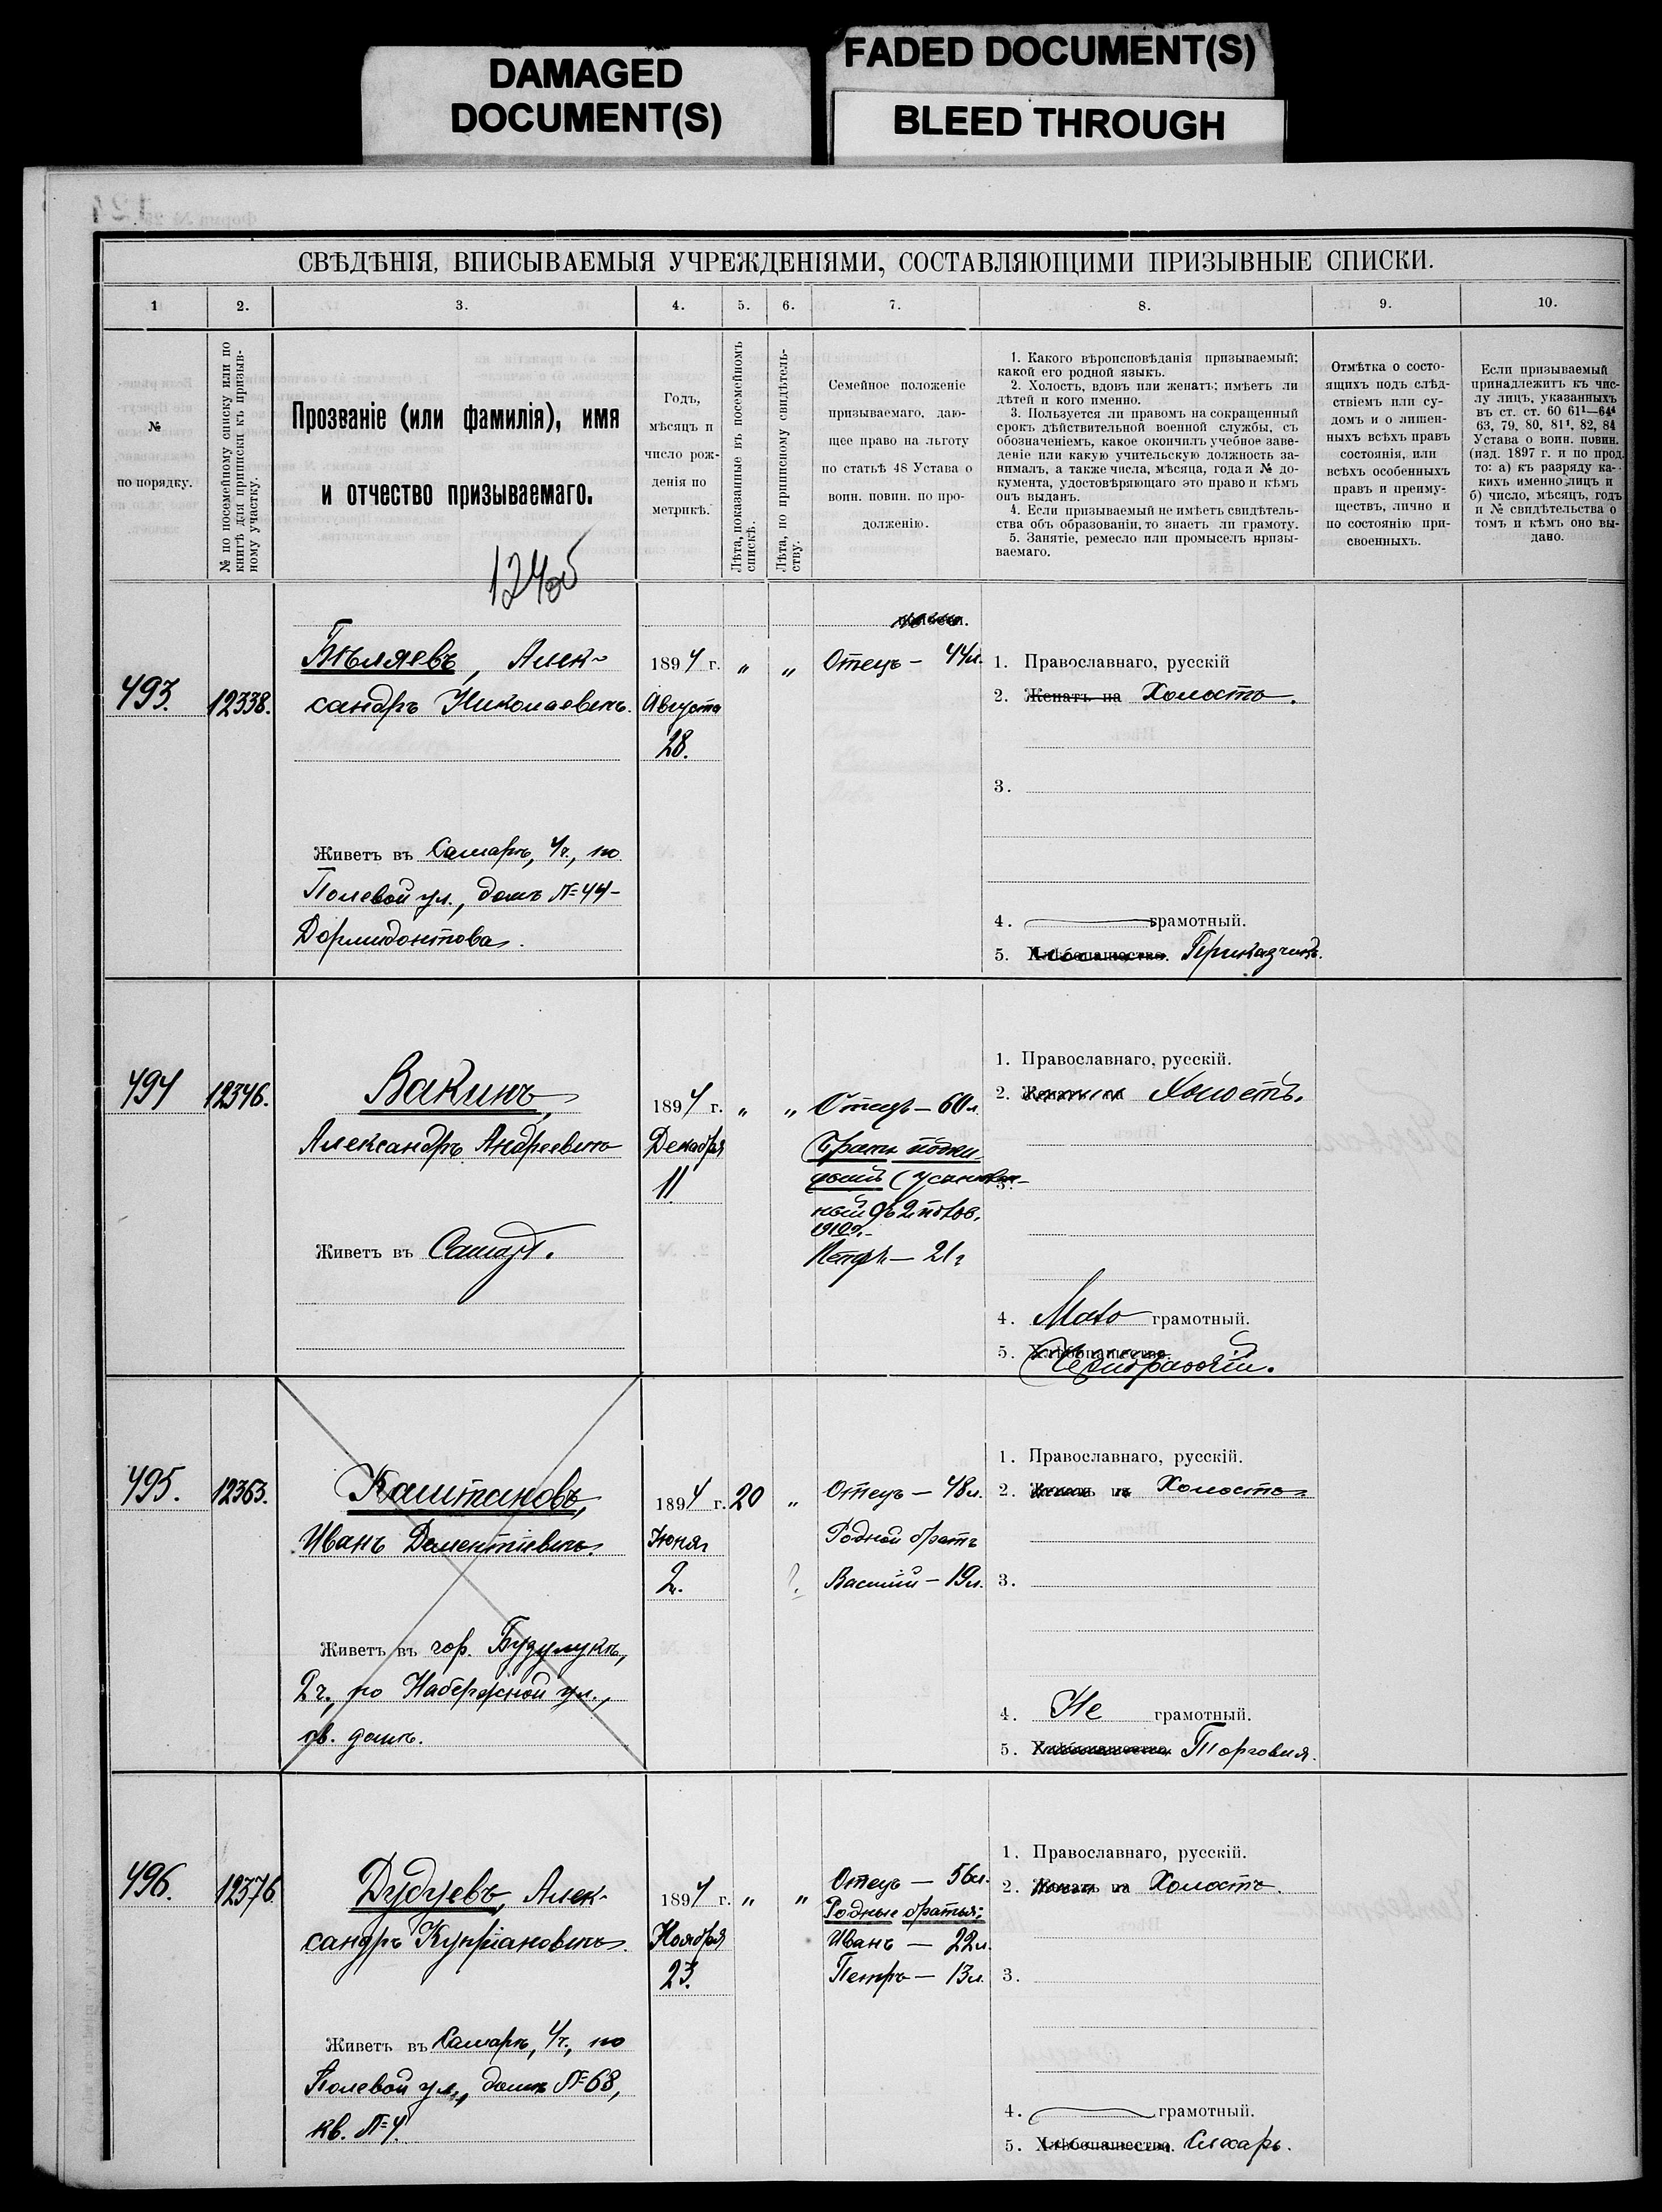 DAMAGED
DOCUMENT(S)
FADED DOCUMENT(S)
BLEED THROUGH
СВѢДѢНІЯ, ВПИСЫВАЕМЫЯ УЧРЕЖДЕНІЯМИ, СОСТАВЛЯЮЩИМИ ПРИЗЫВНЫЕ СПИСКИ.
1 2. 3. 4. 5. 6. 7. 8. 9. 10.
№
по порядку.
№ по посемейному списку или по
книгѣ для приписки къ призыв-
ному участку.
Прозваніе (или фамилія), имя
и отчество призываемаго.
Годъ,
мѣсяцъ и
число рож-
денія по
метрикѣ.
Лѣта, показанные въ посемейномъ
спискѣ.
Лѣта, по приписному свидѣтель-
ству.
Семейное положеніе
призываемаго, даю-
щее право на льготу
по статьѣ 48 Устава о
воин. повин. по про-
долженію.
1. Какого вѣроисповѣданія призываемый;
какой его родной языкъ.
2. Холостъ, вдовъ или женатъ; имѣетъ ли
дѣтей и кого именно.
3. Пользуется ли правомъ на сокращенный
срокъ дѣйствительной военной службы, съ
обозначеніемъ, какое окончилъ учебное заве-
деніе или какую учительскую должность за-
нималъ, а также числа, мѣсяца, года и № до-
кумента, удостовѣряющаго это право и кѣмъ
онъ выданъ.
4. Если призываемый не имѣетъ свидѣтель-
ства объ образованіи, то знаетъ ли грамоту.
5. Занятіе, ремесло или промыселъ призы-
ваемаго.
Отмѣтка о состо-
ящихъ подъ слѣд-
ствіемъ или су-
домъ и о лишен-
ныхъ всѣхъ правъ
состоянія, или
всѣхъ особенныхъ
правъ и преиму-
ществъ, лично и
по состоянію при-
своенныхъ.
Если призываемый
принадлежитъ къ чис-
лу лицъ, указанныхъ
въ ст. ст. 60 61¹—64⁴
63, 79, 80, 81¹, 82, 84
Устава о воин. повин.
(изд. 1897 г. и по прод.
то: а) къ разряду ка-
кихъ именно лицъ и
б) число, мѣсяцъ, годъ
и № свидѣтельства о
томъ и кѣмъ оно вы-
дано.
493.
12338.
Бѣляевъ, Алек-
сандръ Николаевичъ.
Живетъ въ Самарѣ, 4ч., по
Полевой ул., домъ №44-
Дормидонтова.
1894 г.
Августа
28.
" "
Отецъ - 44л.
1. Православнаго, русскій
2. Женатъ на Холостъ.
3.
4. грамотный.
5. Хлѣбопашество. Приказчикъ.
494
12346.
Вакинъ,
Александръ Андреевичъ
Живетъ въ Самарѣ.
1894 г.
Декабря
11
" "
Отецъ — 60л.
1910г.
Петръ — 21г
1. Православнаго, русскій.
2. Женатъ на Холостъ.
3.
4. Мало грамотный.
5. Хлѣбопашество.
Чернорабочій.
495.
12363.
Каштановъ,
Иванъ Дементіевичъ.
Живетъ въ гор. Бузулукѣ,
2ч., по Набережной ул.,
св. домъ.
1894 г.
Іюня
2.
20 "
Отецъ — 48л.
Родной братъ
Василій — 19л.
1. Православнаго, русскій.
2. Женатъ на Холостъ
3.
4. Не грамотный.
5. Хлѣбопашество. Торговля.
496.
12376
Дудуевъ, Алек-
сандръ Купріановичъ.
Живетъ въ Самарѣ, 4ч., по
Полевой ул., домъ №68,
кв. №4.
1894 г.
Ноября
23.
" "
Отецъ — 56л.
Родные братья:
Иванъ — 22л.
Петръ — 13л.
1. Православнаго, русскій.
2. Женатъ на Холостъ.
3.
4. грамотный.
5. Хлѣбопашество. Слесарь.